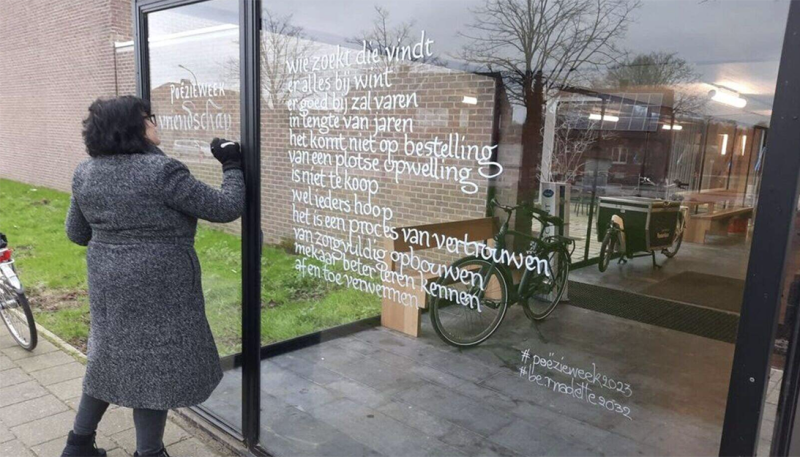 POËZIEWEEK
vriendschap
wie zoekt die vindt
er alles bij wint
er goed bij zal varen
in lengte van jaren
het komt niet op bestelling
van een plotse opwelling
is niet te koop
wel ieders hoop
het is een proces van vertrouwen
van zorgvuldig opbouwen
mekaar beter leren kennen
af en toe verwennen
#poëzieweek2023
#bernadette2032